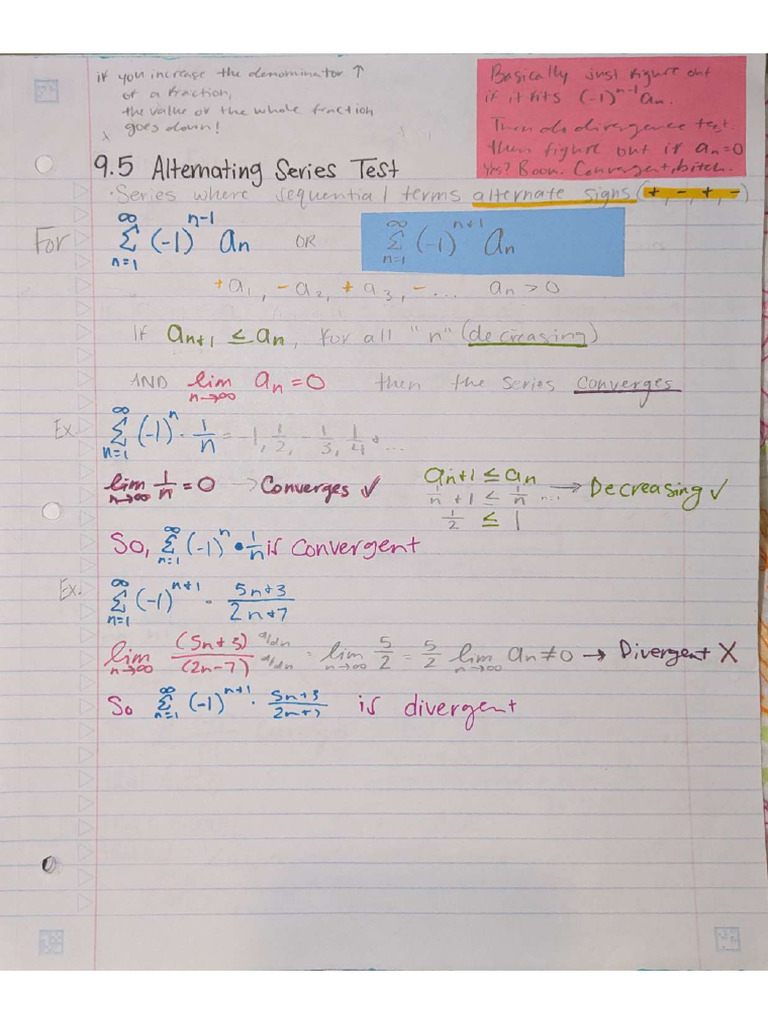 if you increase the denominator ↑
of a fraction,
the value of the whole fraction
goes down!
Basically just figure out
if it fits (-1)^{n-1} a_n.
Then do divergence test.
then figure out if a_n=0
Yes? Boom. Convergent, bitch.
9.5 Alternating Series Test
·Series where sequential terms alternate signs (+, -, +, -)
For ∞Σn=1 (-1)^{n-1} a_n OR ∞Σn=1 (-1)^{n+1} a_n
+a_1, -a_2, +a_3, -... a_n > 0
If a_{n+1} ≤ a_n, for all "n" (decreasing)
AND lim n→∞ a_n = 0 then the series converges
Ex. ∞Σn=1 (-1)^n · 1/n = -1, 1/2, -1/3, 1/4 ...
lim n→∞ 1/n = 0 → Converges ✓
a_{n+1} ≤ a_n
1/n +1 ≤ 1/n ... → Decreasing ✓
1/2 ≤ 1
So, ∞Σn=1 (-1)^n · 1/n is convergent
Ex. ∞Σn=1 (-1)^{n+1} · 5n+3/2n+7
lim n→∞ (5n+3)/(2n-7) d/dn d/dn = lim n→∞ 5/2 = 5/2 lim n→∞ a_n ≠ 0 → Divergent X
So ∞Σn=1 (-1)^{n+1} · 5n+3/2n+7 is divergent